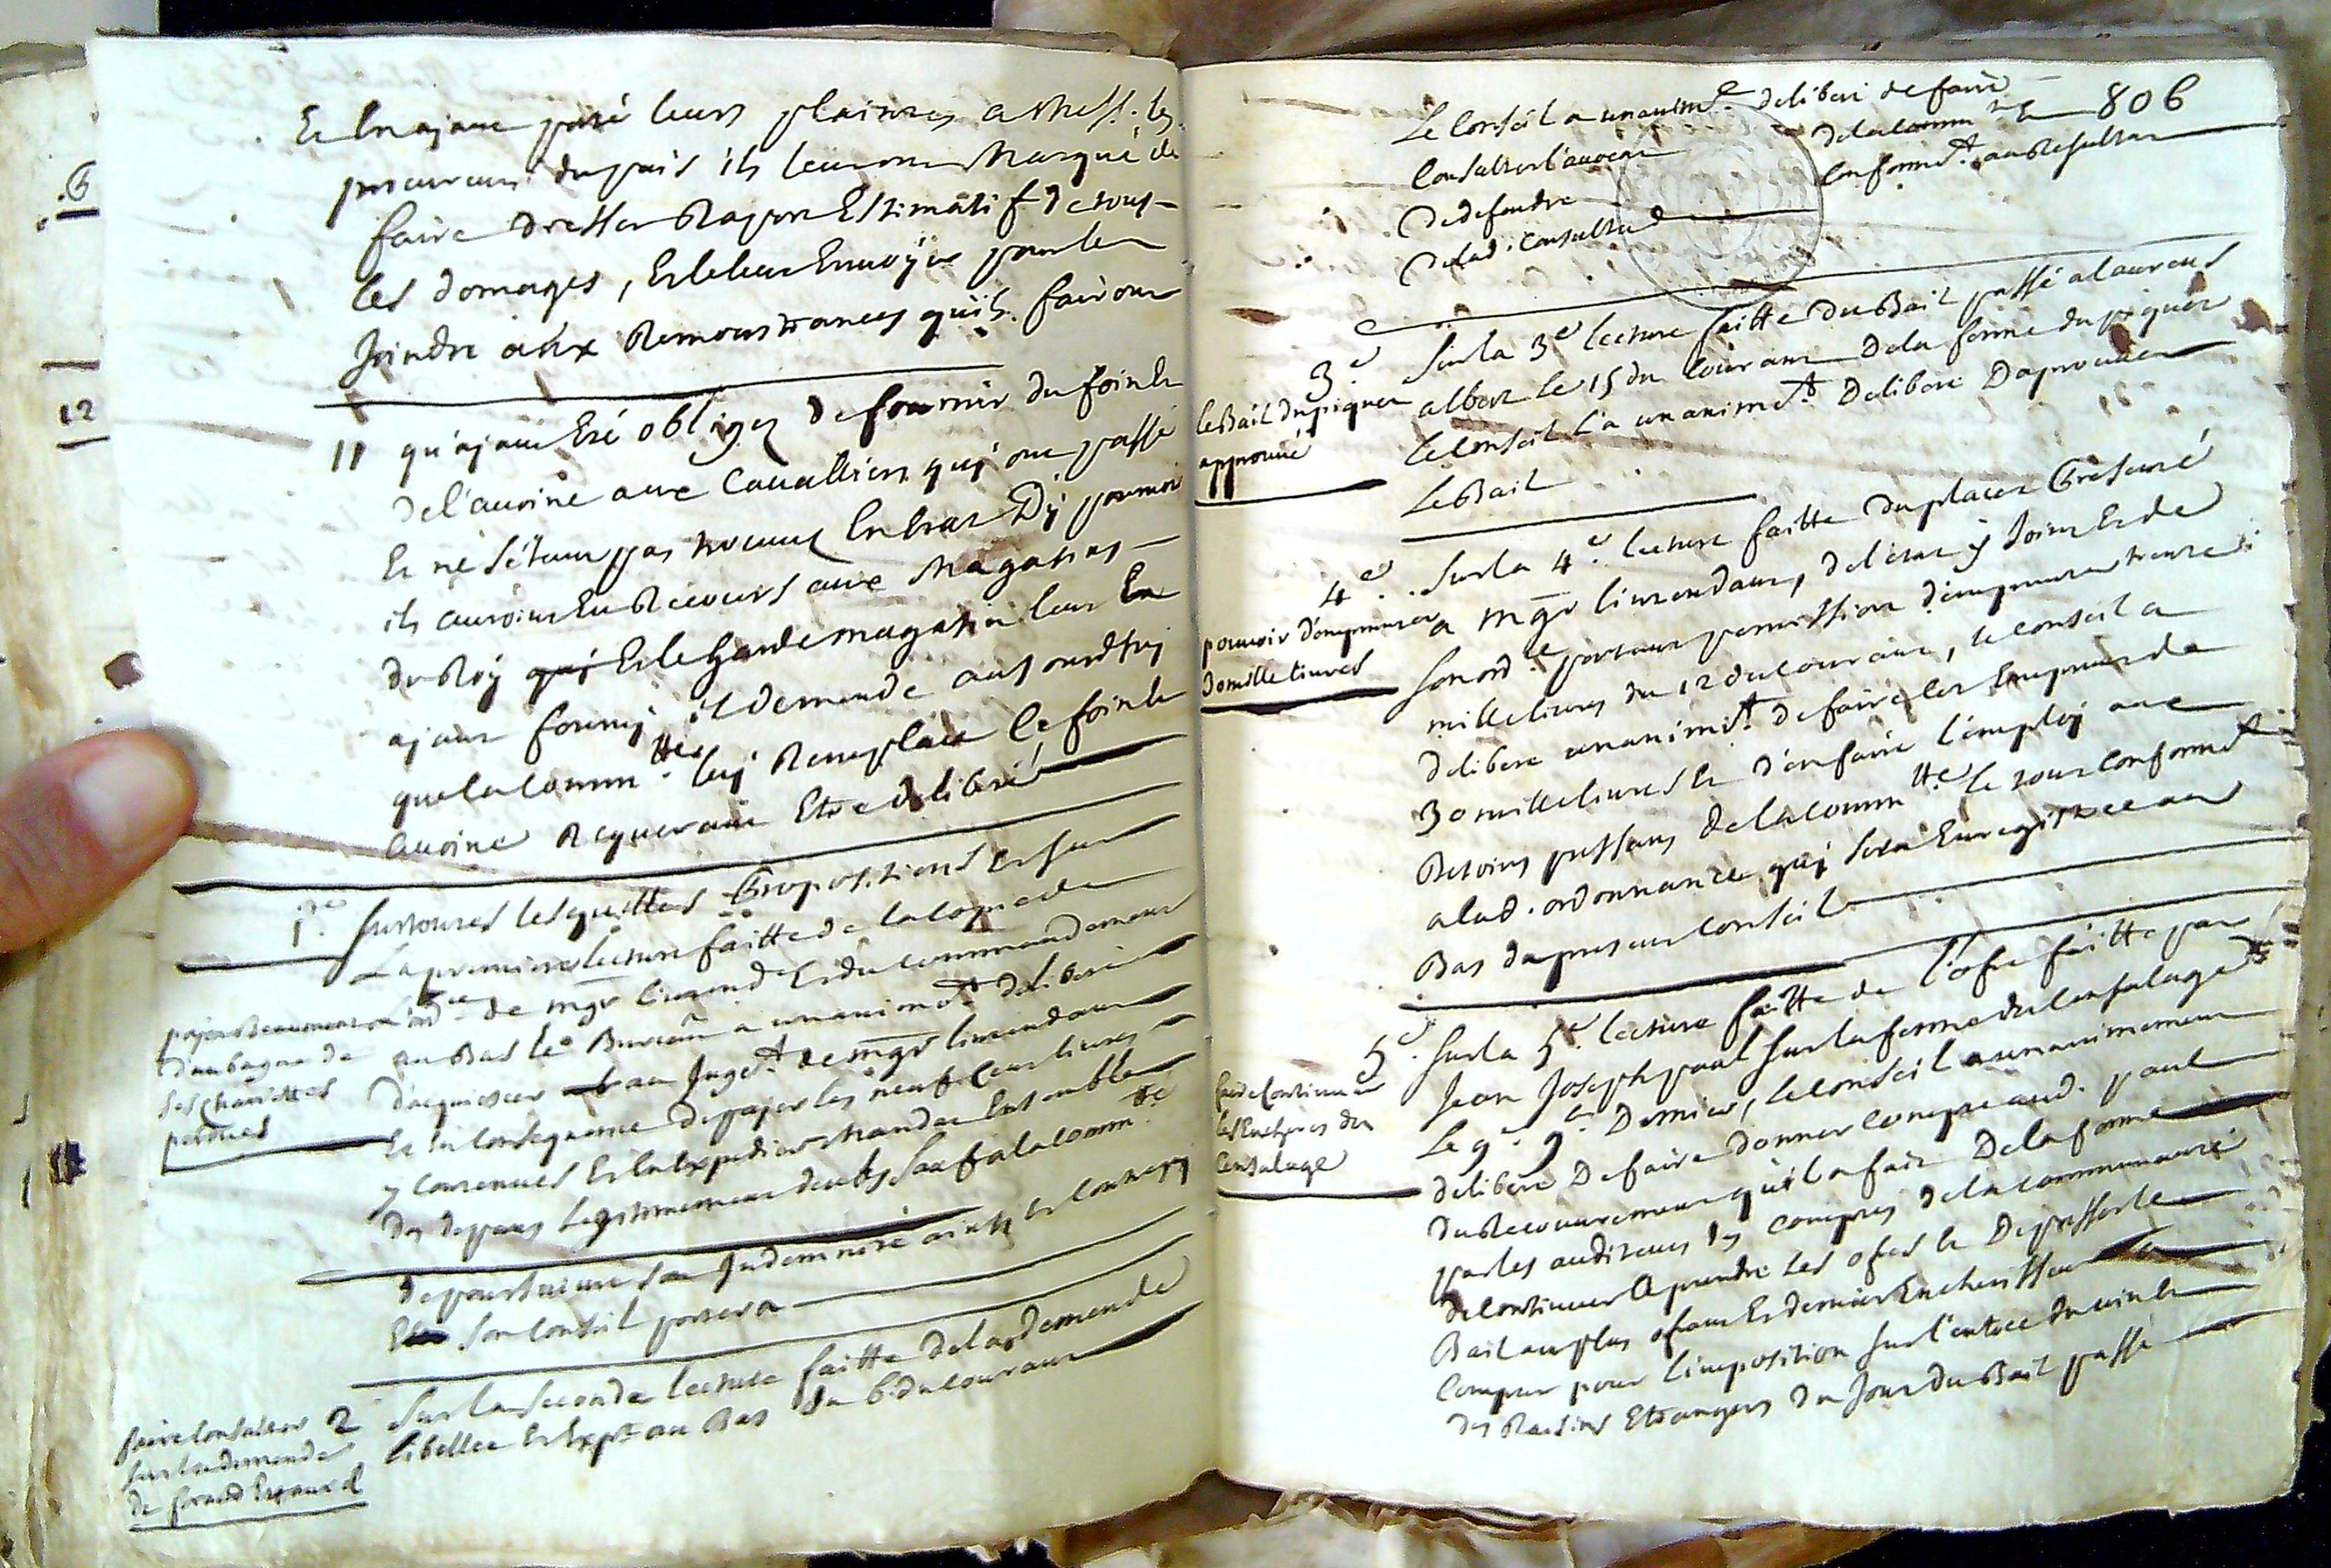 Et en ajant porté leurs plaintes a Mess. les
procureurs du pais ils leur ont Marqué de
faire dresser Raport Estimatif de tous
les domages, Et le leur Envoÿer pour le
Joindre aux Remonstrances qu'ils fairont
11 qu'ajant Eté obliges de fournir du foin Et
de l'avoine aux Cavalliers quj ont passé
Et ne s'étant pas trouvés En Etat D'ÿ pourvoir
ils auroint Eu Recours aux Magasins
du Roÿ Et le Garde magasin leur En
ajant fournj il demande aujourdhuj
que la Comm.tté luj Remplace le foin Et
avoine Requerant Etre deliberé
1.re Sur toutes lesquelles Propositions Et sur
La premiere lecture faitte de la copie de
l'ord.ce de mgr l'intend.t Et du commandement
au Bas le Bureau a unanim.t deliberé
d'acquiescer au Juge.t de mgr l'intendant
Et en Consequence de pajer les neuf Cent livres
y contenues Et En Expedier Mandat Ensemble
des depans Legitimement deubs sauf a la Comm.tté
de poursuivre son Indemnité ainsi Et contre qui
son Conseil portera
pajer
d'aubagne de
ses charrettes
perdues
Sur la Seconde lecture faitte de la demande
libellée Et Expt au Bas du 6. du Courant
faire Consulter 2
sur la demande
de
6
12
806
Le Conseil a unanim.t deliberé de faire
Consulter l'avocat de la Comm.tté
De defendre Conform.t au Resultat
De lad. Consulta.on
3.e Sur la 3.e lecture faitte du Bail passé a laurens
albert le 15 du Courant de la ferme du piquet
Le Conseil l'a unanim.t Deliberé D'aprouver
Le Bail
le Bail du piquet
approuvé
4.e Sur la 4.e lecture faitte du placet Presenté
a mgr l'intendant, de l'etat ÿ Joint Et de
son ord.ce portant permission d'emprunter trente
mille livres du 12 du Courant, le Conseil a
deliberé unanim.t de faire les Emprunts de
30 mille livres Et d'en faire l'emploj aux
Besoins pressans de la Comm.tté le tout Conform.t
a lad. ordonnance quj sera Enregistrée au
Bas du present Conseil
pouvoir d'emprunter
30 mille livres
5.e Sur la 5.e lecture faitte de l'ofre faitte par
Jean Joseph paul sur la ferme du Censalage
Le 9.e 9.bre Dernier, le Conseil a unanimement
deliberé De faire donner Compte aud. paul
du Recouvrement qu'il a fait De la ferme
par les auditeurs des comptes de la communauté
de Continuer a prendre les ofres Et De passer le
Bail au plus ofrant Et dernier Encherisseur
Compter pour l'imposition sur l'entrée du vin Et
des Raisins Etrangers du Jour du Bail passé
les Encheres du
Censalage